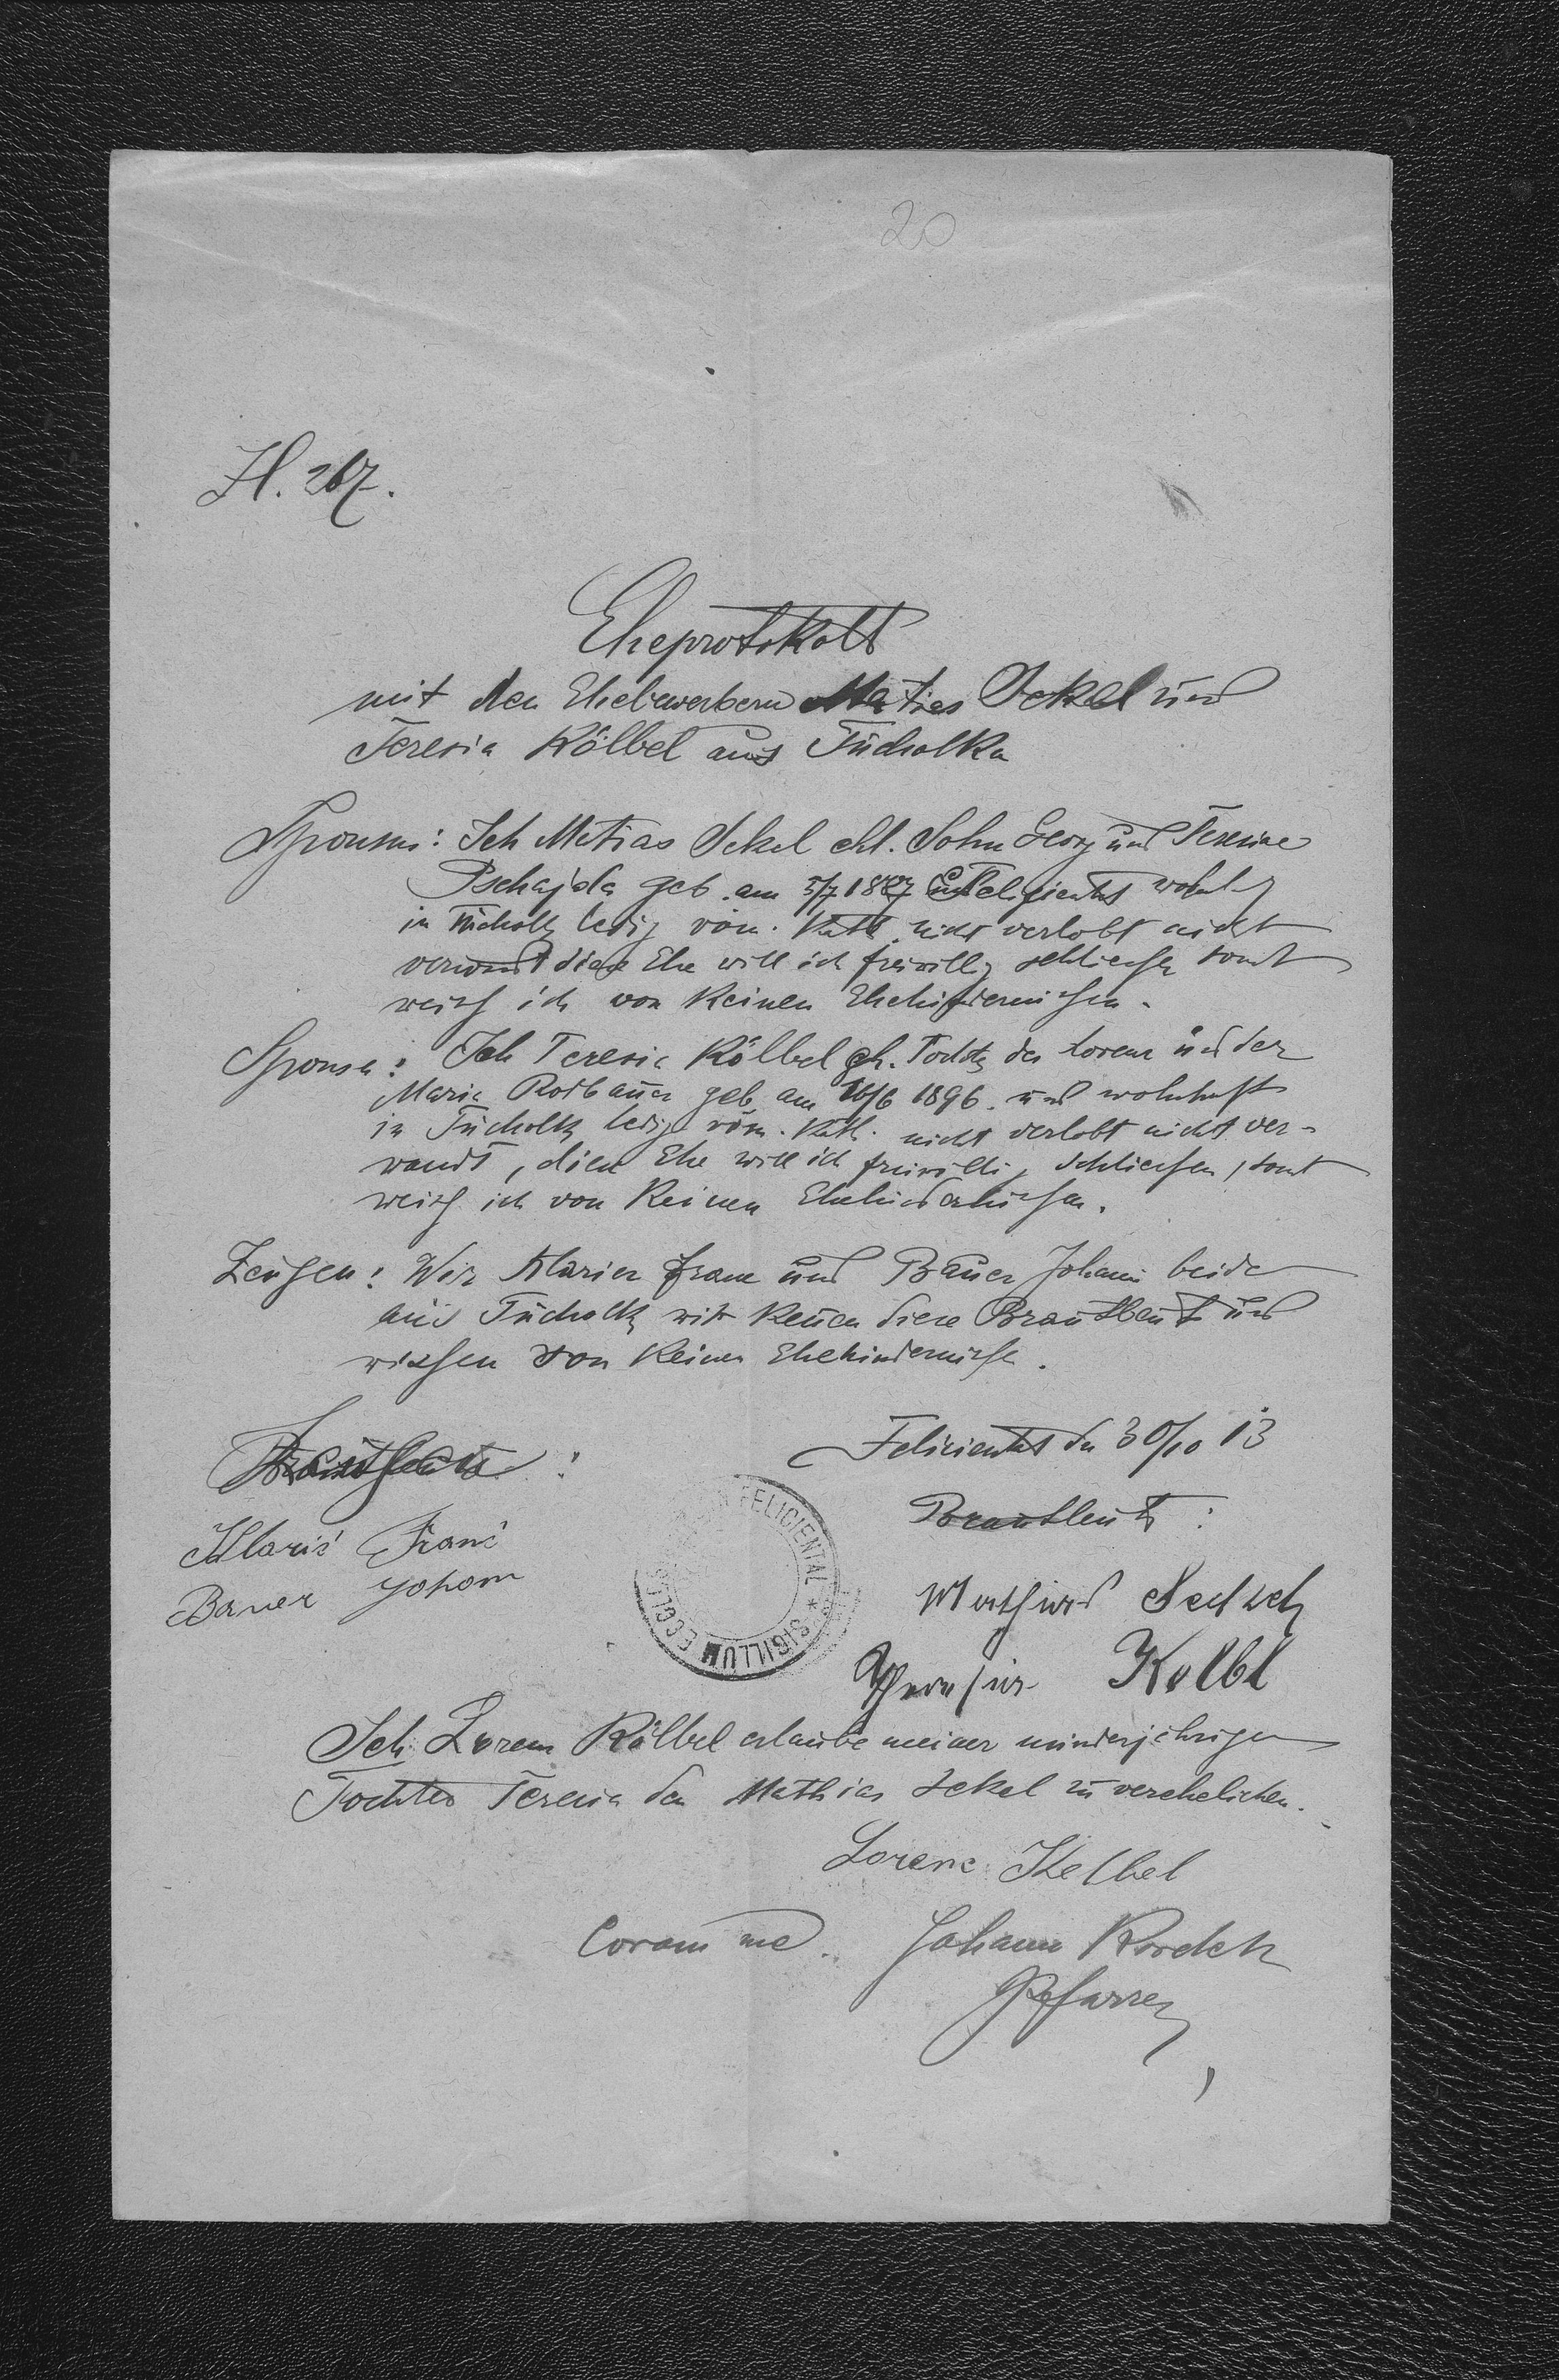 20
Zl. 267.
Eheprotokoll
mit den Ehebewerbern Matias Sekel und
Teresia Kölbel aus Tucholka
Sponsus: Ich Matias Sekel ehl. Sohn Georg und Teresine
Pschajda geb. am 5/7 1887 Felicienthal wohnh
in Tucholk ledig röm. Kath. nicht verlobt nicht
verwandt diese Ehe will ich freiwillig schliessen sonst
weiss ich von keinen Ehehindernissen.
Sponsa: Ich Teresia Kölbel eh. Tochter des Lorenz und der
Maria Rotbauer geb am 16/6 1896. und wohnhaft
in Tucholk ledig röm. Kath. nicht verlobt nicht ver-
wandt, diese Ehe will ich freiwillig schliessen, sonst
weiss ich von keinen Ehehindernissen.
Zeugen: Wir Klarier Franz und Bauer Johann beide
aus Tucholk wir kenen diese Brautleute und
wissen von keinen Ehehindernisse.
Felicienthal den 30/10 13
Brautleute:
Klarié Franć
Bauer Johann
ECCLES FELICIENTAL * SIGILLUM
Mathias
Theresia Kölbl
Ich Lorenz Kölbel erlaube meiner minderjehrigen
Tochter Teresia den Mathias Sekel zu verehelichen.
Lorenc Kelbel
Coram me. Johann
Pfarrer